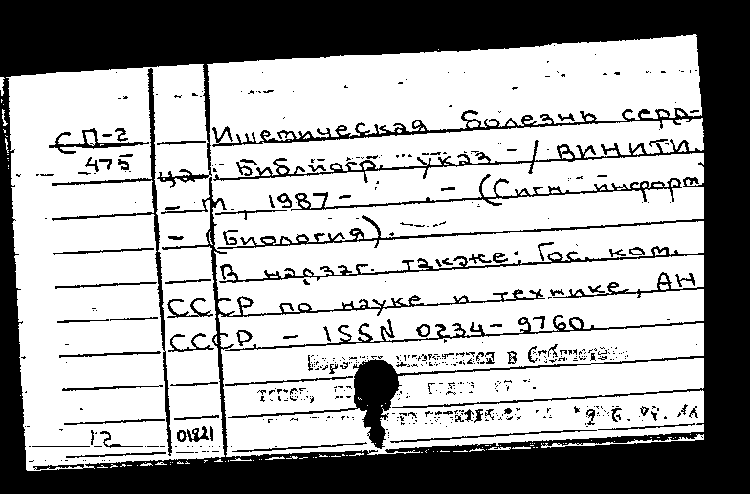 СП-2
475
Ишемическая болезнь серд-
ца: Библиогр. указ. - / ВИНИТИ.
- М, 1987- . - (Сигн. информ
- (Биология).
В надзаг. также: Гос. ком.
СССР по науке и технике, АН
СССР. - ISSN 0234-9760.
в библиотек
12
01821